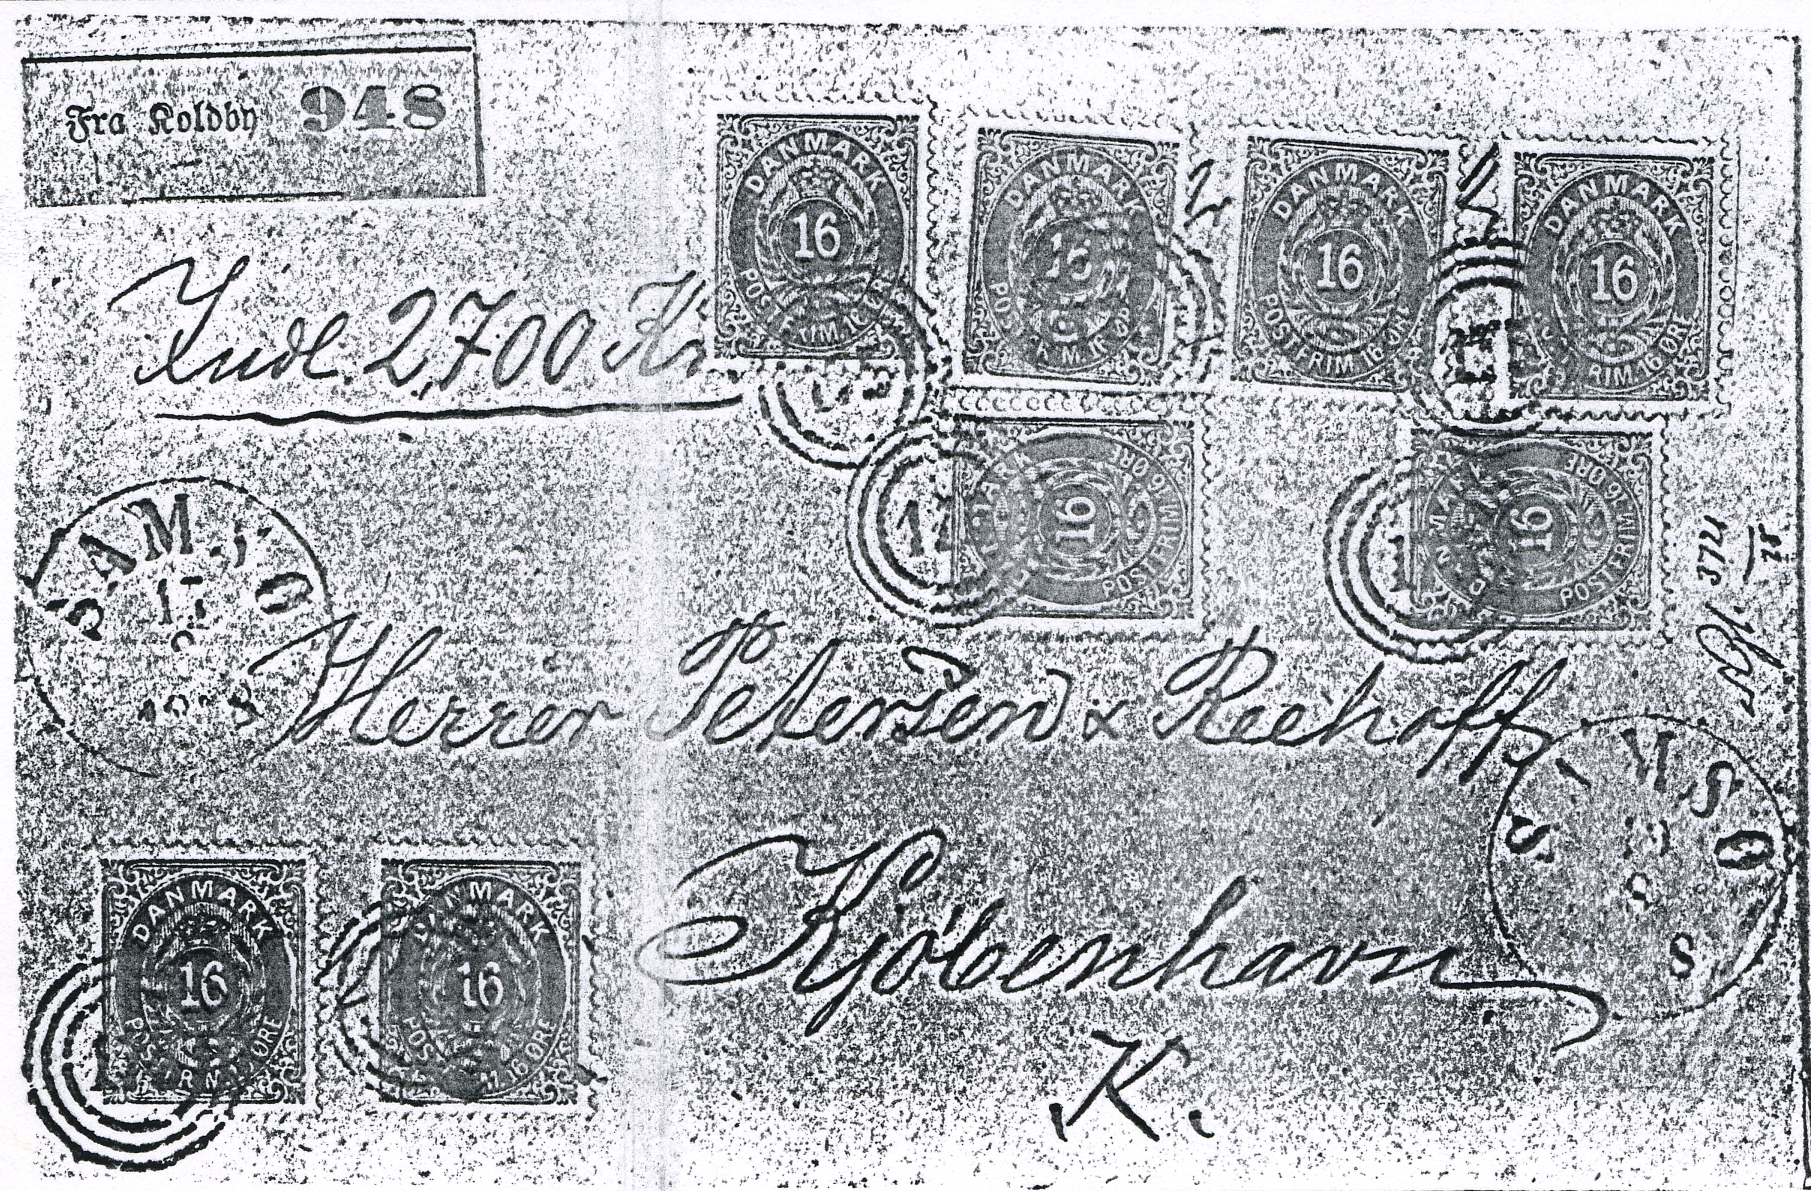 Fra Koldby 948
Indl. 2,700 Kr.
DANMARK 16 POSTFRIM. 16 ØRE
DANMARK 16 POSTFRIM. 16 ØRE
DANMARK 16 POSTFRIM. 16 ØRE
DANMARK 16 POSTFRIM. 16 ØRE
DANMARK 16 POSTFRIM. 16 ØRE
DANMARK 16 POSTFRIM. 16 ØRE
SAMSØ
17
Herrer Petersen & Reehoff
SAMSØ
18
8
S
DANMARK 16 POSTFRIM. 16 ØRE
DANMARK 16 POSTFRIM. 16 ØRE
Kjøbenhavn
K.